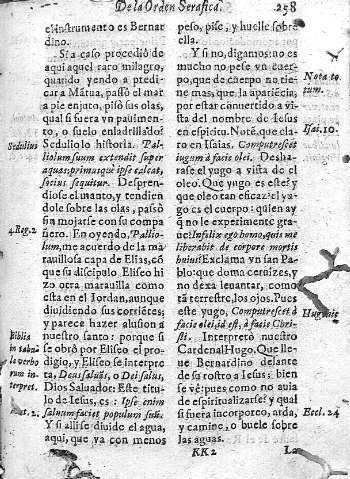 De la Orden Serafica. 258
e instrumento es Bernar
dino.
Si a caso procediò de
aqui aquel raro milagro,
quando yendo a predi
car a Màtua, passò el mar
a pie enjuto, pisò sus olas,
qual si fuera vn pauimen
to, o suelo enladrillado?
Sedulio lo historia. Pal-
liolum suum extendit super
aquas: primusque ipse calcat,
socius sequitur. Despren-
diose el manto, y tendien
dole sobre las olas, passò
sin mojarse con su compa
ñero. En oyendo, Pallio-
lum, me acuerdo de la ma
rauillosa capa de Elias, cô
que su discipulo Eliseo hi
zo otra marauilla como
esta en el Iordan, aunque
diuidiendo sus corriêtes;
y parece hazer alusion a
nuestro santo: porque si
se obrò por Eliseo el pro-
digio, y Eliseo se interpre
ta, Deus salus, o Dei salus,
Dios Saluador: Este titu-
lo de Iesus, es: Ipse enim
saluum faciet populum suũ.
Y si alli se diuide el agua,
aqui, que ya con menos
Sedulius
4. Reg. 2
Biblia
in tabu
la verbo
rum in-
terpret.
peso, pise, y huelle sobre
ella.
Y si no, digamos: no es
mucho no pese vn cuer-
po, que de cuerpo no tie-
ne mas, que la apariêcia;
por estar conuertido a vis
ta del nombre de Iesus
en espiritu. Notè, que cla
ro en Isaias. Computrescet
iugum à facie olei. Desha-
rase el yugo a vista de el
oleo. Que yugo es este? y
que oleo tan eficaz? el yu
go es el cuerpo: quien ay
q̃ no le experimente gra
ue? Infelix ego homo, quis me
liberabit de corpore mortis
huius? Exclama vn san Pa-
blo: que doma cernizes, y
no dexa leuantar, como
tã terrestre, los ojos. Pues
este yugo, Computrescet à
facie olei, id est, à facie Chri-
sti. Interpretò nuestro
Cardenal Hugo. Que lle-
ue Bernardino delante
de su rostro a Iesus: bien
se vè: pues como no auia
de espiritualizarse? y qual
si fuera incorporeo, arda,
y camine, o buele sobre
las aguas.
Nota to
tum.
Isai. 10.
Eccl. 24
KK 2 La